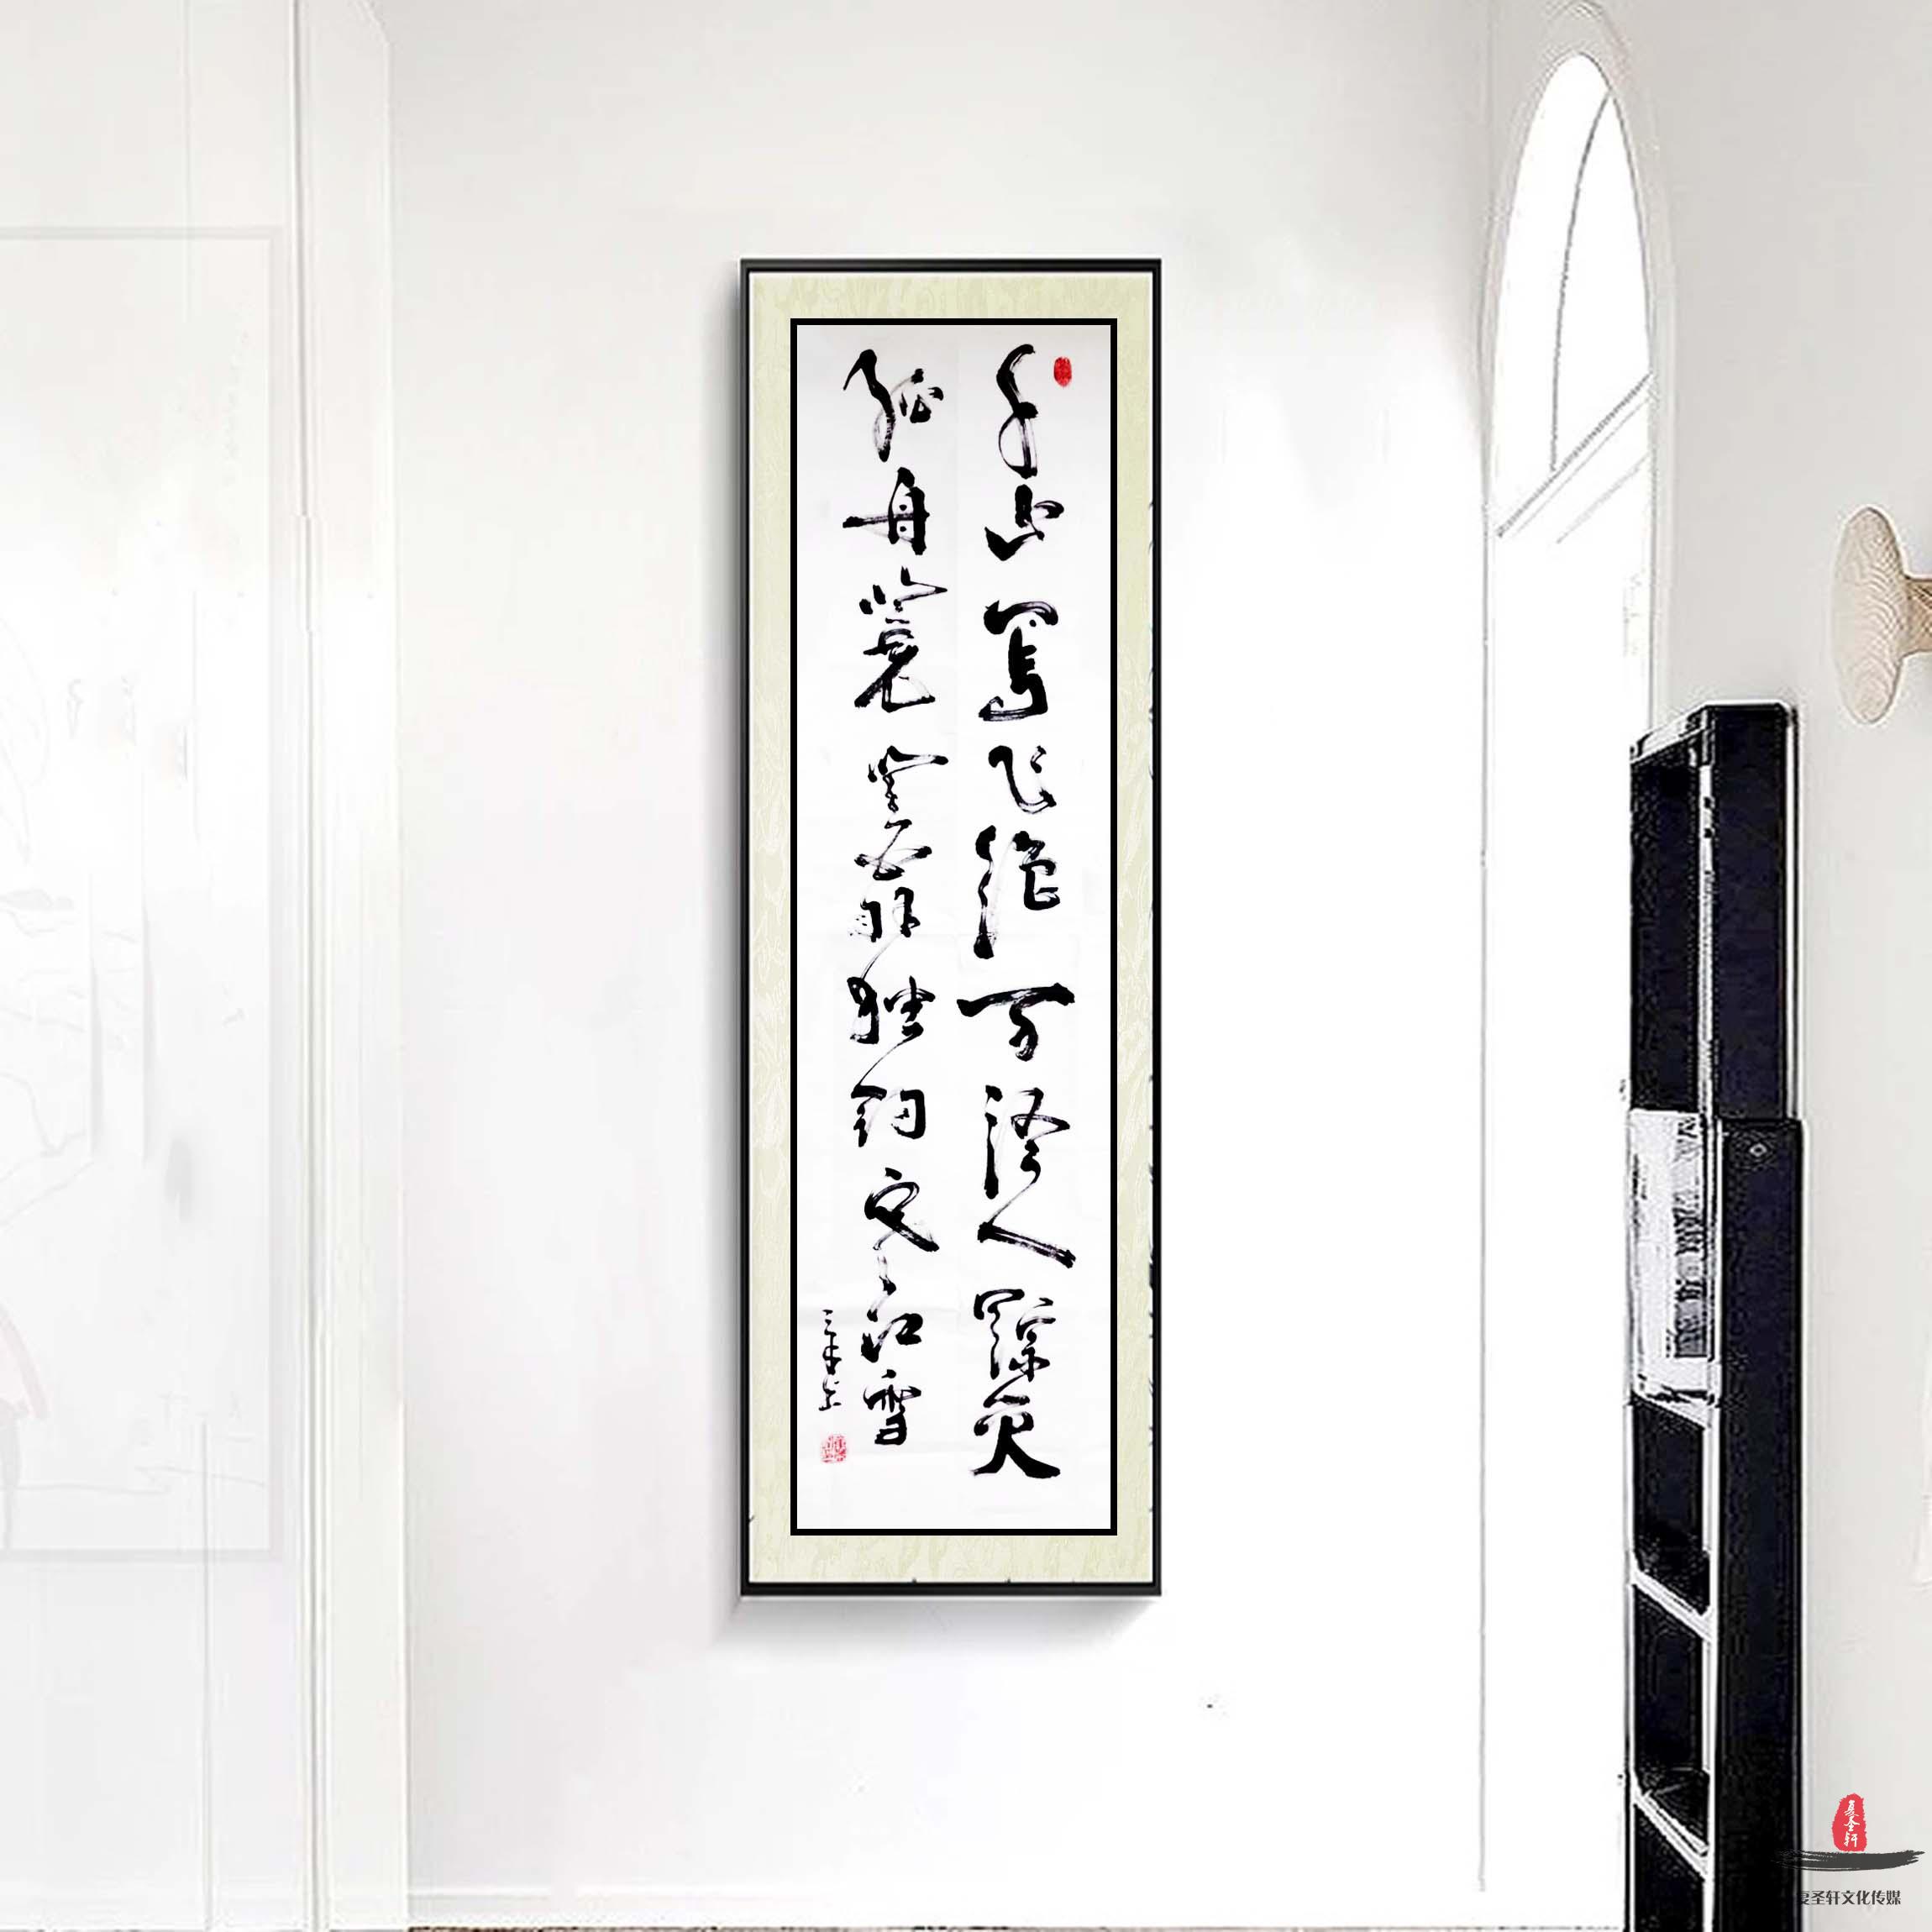 千山鸟飞绝万径人踪灭
孤舟蓑笠翁独钓寒江雪
夏圣轩
夏圣轩文化传媒